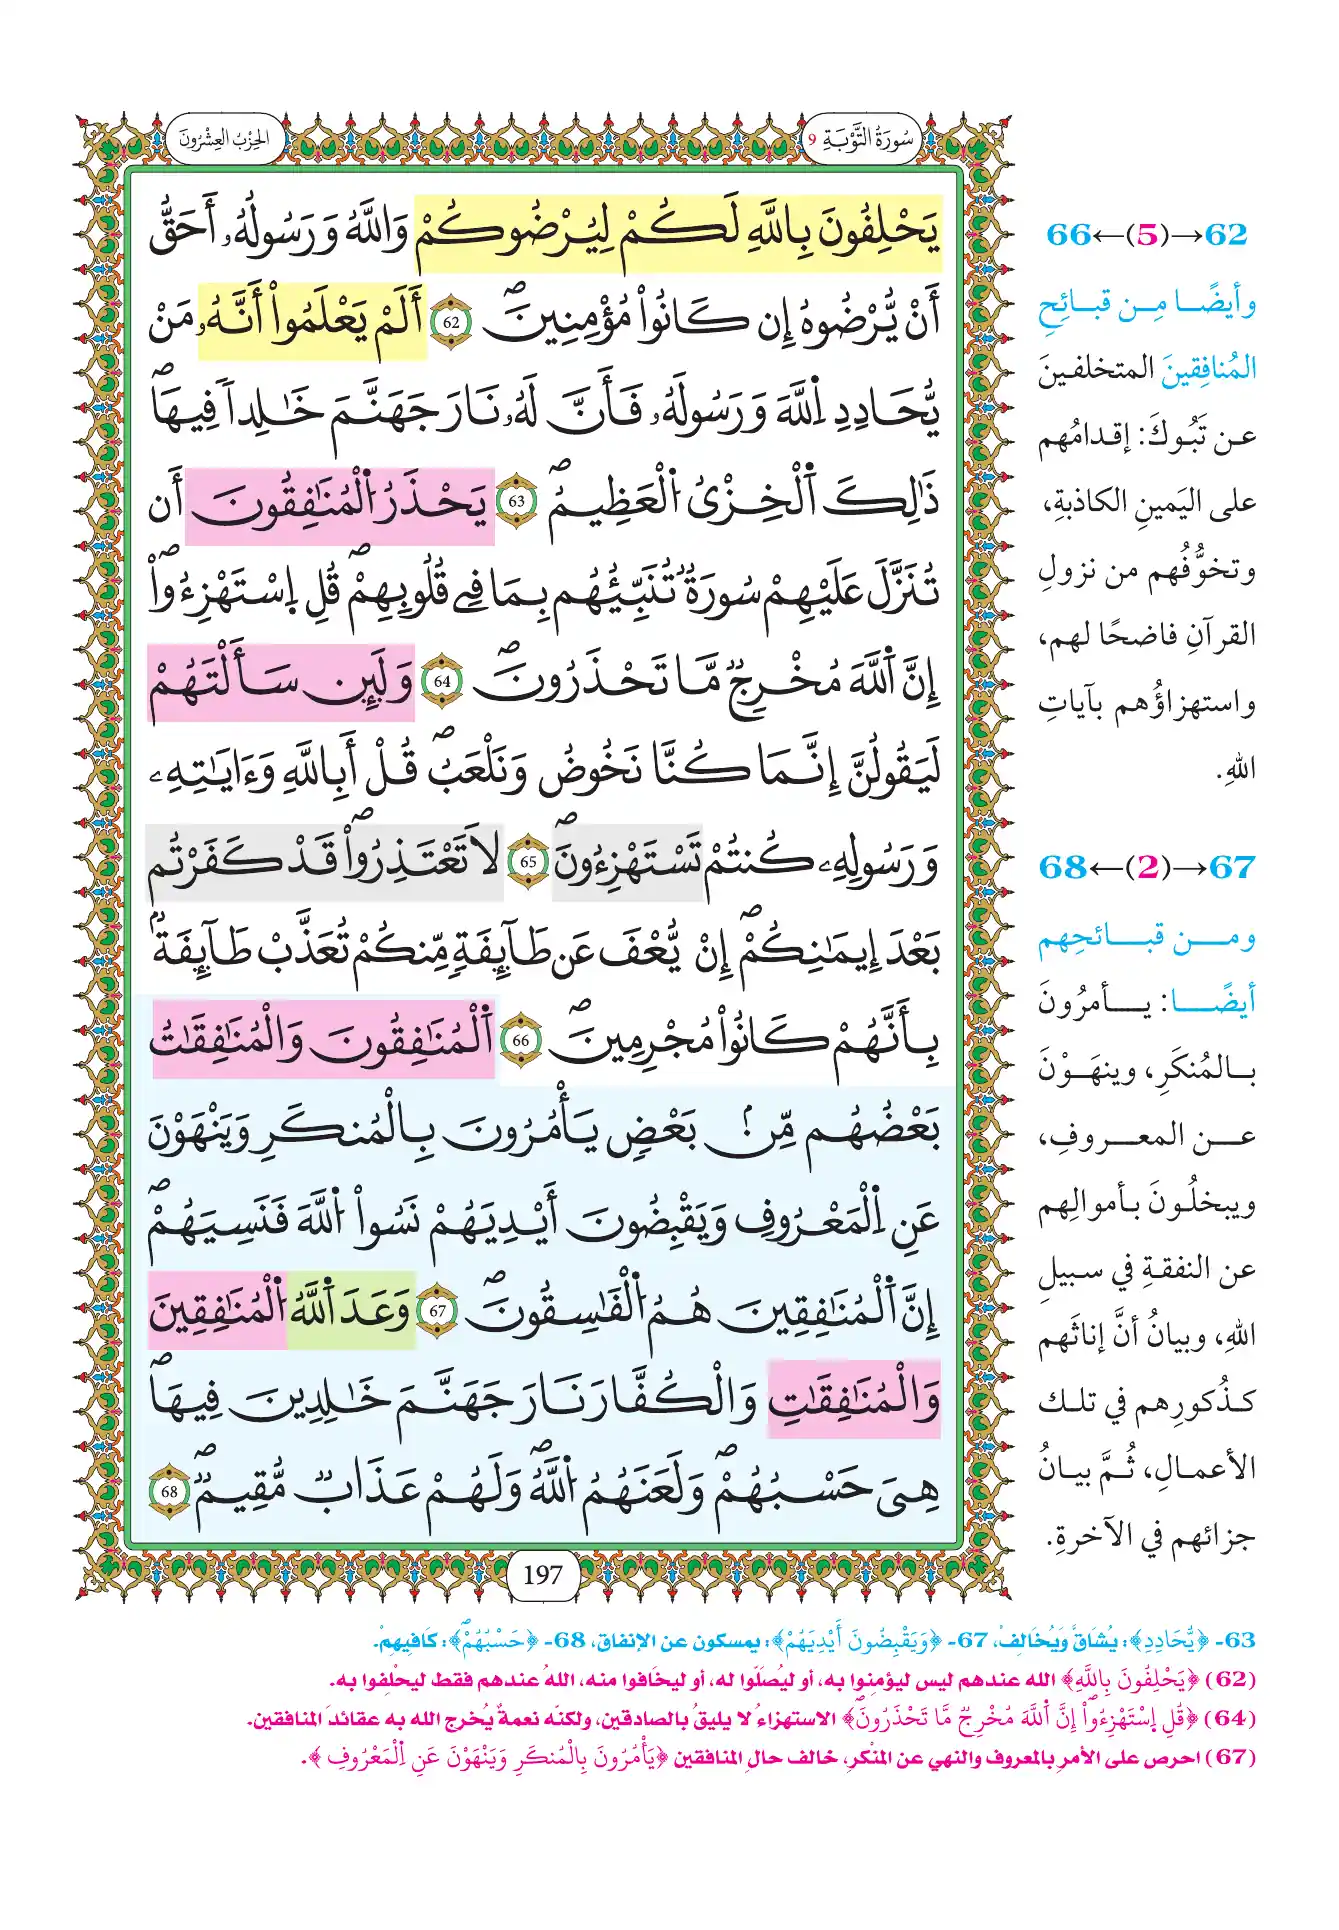 سُورَةُ التَّوْبَةِ 9
الحِزْبُ العِشْرُونَ
يَحْلِفُونَ بِاللَّهِ لَكُمْ لِيُرْضُوكُمْ وَاللَّهُ وَرَسُولُهُۥ أَحَقُّ
أَنْ يُّرْضُوهُ إِن كَانُواْ مُؤْمِنِينَۖ 62 أَلَمْ يَعْلَمُواْ أَنَّهُۥ مَنْ
يُّحَادِدِ اِللَّهَ وَرَسُولَهُۥ فَأَنَّ لَهُۥ نَارَ جَهَنَّمَ خَٰلِداٗ فِيهَاۖ
ذَٰلِكَ اَ۬لْخِزْىُ اُ۬لْعَظِيمُۖ 63 يَحْذَرُ اُ۬لْمُنَٰفِقُونَ أَن
تُنَزَّلَ عَلَيْهِمْ سُورَةٞ تُنَبِّئُهُم بِمَا فِے قُلُوبِهِمْۖ قُلِ اِ۪سْتَهْزِءُوٓاْۖ
إِنَّ اَ۬للَّهَ مُخْرِجٞ مَّا تَحْذَرُونَۖ 64 وَلَئِن سَأَلْتَهُمْ
لَيَقُولُنَّ إِنَّمَا كُنَّا نَخُوضُ وَنَلْعَبُۖ قُلْ أَبِاللَّهِ وَءَايَٰتِهِۦ
وَرَسُولِهِۦ كُنتُمْ تَسْتَهْزِءُونَۖ 65 لَا تَعْتَذِرُواْۖ قَدْ كَفَرْتُم
بَعْدَ إِيمَٰنِكُمْۖ إِنْ يُّعْفَ عَن طَآئِفَةٖ مِّنكُمْ تُعَذَّبْ طَآئِفَةُۢ
بِأَنَّهُمْ كَانُواْ مُجْرِمِينَۖ 66 اَ۬لْمُنَٰفِقُونَ وَالْمُنَٰفِقَٰتُ
بَعْضُهُم مِّنۢ بَعْضٖ يَأْمُرُونَ بِالْمُنكَرِ وَيَنْهَوْنَ
عَنِ اِ۬لْمَعْرُوفِ وَيَقْبِضُونَ أَيْدِيَهُمْ نَسُواْ اُ۬للَّهَ فَنَسِيَهُمْۖ
إِنَّ اَ۬لْمُنَٰفِقِينَ هُمُ اُ۬لْفَٰسِقُونَۖ 67 وَعَدَ اَ۬للَّهُ اُ۬لْمُنَٰفِقِينَ
وَالْمُنَٰفِقَٰتِ وَالْكُفَّارَ نَارَ جَهَنَّمَ خَٰلِدِينَ فِيهَاۖ
هِىَ حَسْبُهُمْۖ وَلَعَنَهُمُ اُ۬للَّهُۖ وَلَهُمْ عَذَابٞ مُّقِيمٞۖ 68
197
62→(5)←66
وأيضًا مِن قبائحِ
المُنافِقينَ المتخلفينَ
عن تَبُوكَ: إقدامُهم
على اليَمينِ الكاذبةِ،
وتخوُّفُهم من نزولِ
القرآنِ فاضحًا لهم،
واستهزاؤُهم بآياتِ
اللهِ.
67→(2)←68
ومن قبائحِهم
أيضًا: يأمرُونَ
بالمُنكَرِ، وينهَوْنَ
عن المعروفِ،
ويبخلُونَ بأموالِهم
عن النفقةِ في سبيلِ
اللهِ، وبيانُ أنَّ إناثَهم
كذُكورِهم في تلك
الأعمالِ، ثُمَّ بيانُ
جزائهم في الآخرةِ.
63- ﴿يُّحَادِدِ﴾: يُشَاقُّ وَيُخَالِفُ، 67- ﴿وَيَقْبِضُونَ أَيْدِيَهُمْ﴾: يمسكون عن الإنفاق، 68- ﴿حَسْبُهُمْۖ﴾: كَافِيهِمْ.
(62) ﴿يَحْلِفُونَ بِاللَّهِ﴾ الله عندهم ليس ليؤمِنوا به، أو ليُصَلّوا له، أو ليخَافوا منه، اللهُ عندهم فقط ليحْلِفوا به.
(64) ﴿قُلِ اِ۪سْتَهْزِءُوٓاْۖ إِنَّ اَ۬للَّهَ مُخْرِجٞ مَّا تَحْذَرُونَۖ﴾ الاستهزاءُ لا يليقُ بالصادقين، ولكنّه نعمةٌ يُخرج الله به عقائدَ المنافقين.
(67) احرص على الأمرِ بالمعروف والنهي عن المنْكر، خالف حالَ المنافقين ﴿يَأْمُرُونَ بِالْمُنكَرِ وَيَنْهَوْنَ عَنِ اِ۬لْمَعْرُوفِ﴾.